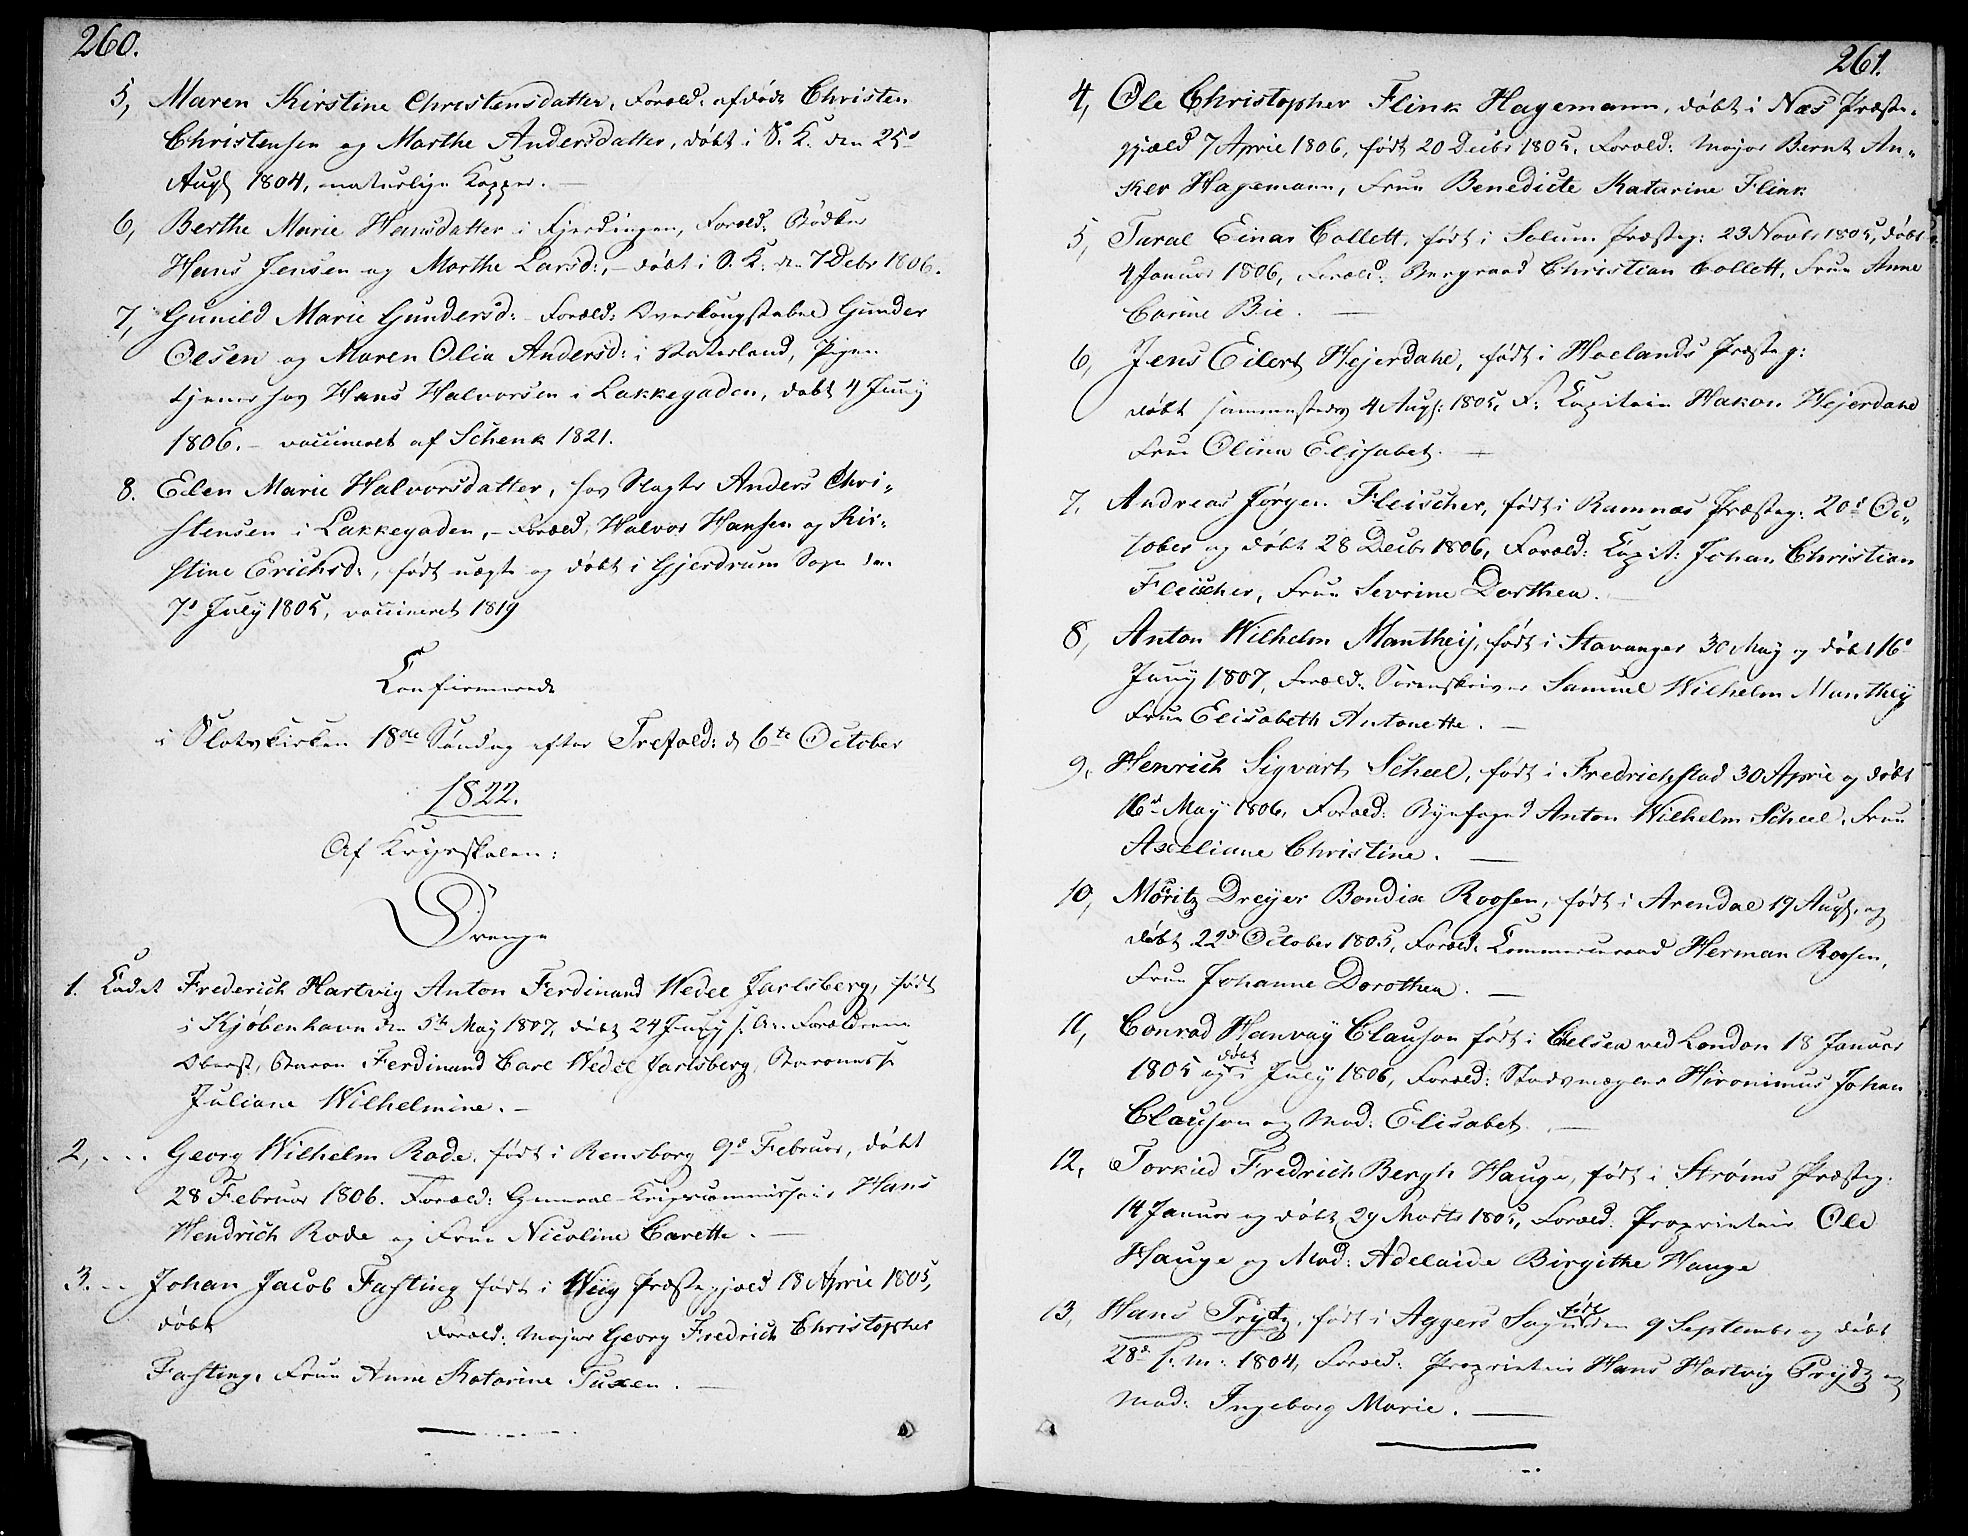 260.
5, Maren Kirstine Christensdatter, Foræld. afdøde Christen
Christensen og Marthe Andersdatter, døbt i S. K. den 25d
Augs 1804, naturlige Kopper. —
6, Berthe Marie Hansdatter i Fjerdingen, Foræld: Bødker
Hans Jensen og Marthe Larsd:, – døbt i S. K. den 7 Debr 1806.
7, Gunild Marie Gundersd: Foræld: Gunder
Olsen og Maren Olia Andersd: i Vaterland, Pigen
tjener hos Hans Halvorsen i Lakkegaden, døbt 4 Juny
1806. – vaccineret af Schenk 1821.
8. Elen Marie Halvorsdatter, hos Slagter Anders Chri-
stensen i Lakkegaden, – Foræld. Halvor Hansen og Kir-
stine Erichsd:, født uægte og døbt i Gjerdrum Sogn den
7d July 1805, vaccineret 1819
Confirmerede
i Slotskirken 18de Søndag efter Trefold: d 6te October
1822.
Af Krigsskolen:
Drenge
1. Cadet Frederich Hartvig Anton Ferdinand Wedel Jarlsberg, født
i Kjøbenhavn den 5te May 1807, døbt 24 Juny s. A. Forældrene
Oberst, Baron Ferdinand Carl Wedel Jarlsberg, Baronesse
Juliane Wilhelmine. –
2, - - - Georg Wilhelm Rode, født i Rensborg 9d Februar, døbt
28 Februar 1806. Foræld: General-Krigscommissair Hans
Hendrich Rode og Frue Nicoline Carette. —
3. - - Johan Jacob Fasting født i Wiig Præstegjæld 18 April 1805,
døbt Foræld: Major Georg Fredrich Christopher
Fasting, Frue Anne Katarine Tuxen. —
261.
4, Ole Christopher Flink Hagemann, døbt i Næs Præste-
gjæld 7 April 1806, født 20 Decbr 1805. Foræld: Major Bernt An-
ker Hagemann, Frue Benedicte Katarine Flink
5, Taral Einar Collett, født i Solum Præsteg: 23 Novbr 1805, døbt
4 Januar 1806, Foræld: Bergraad Christian Collett, Frue Anne
Carine Bie. —
6, Jens Eilert Hejerdahl, født i Hølands Præsteg:
døbt sammesteds 4 Augs: 1805, F: Capitain Hakon Hejerdahl
Frue Olina Elisabet. —
7. Andreas Jørgen Fleischer, født i Ramnæs Præsteg: 20d Oc-
tober og døbt 28 Decbr 1806, Foræld: Capit: Johan Christian
Fleischer, Frue Sevrine Dorthea. —
8, Anton Wilhelm Manthey, født i Stavanger 30 May og døbt 16d
Juny 1807, Foræld: Sorenskriver Samuel Wilhelm Manthey
Frue Elisabeth Antonette. —
9, Henrich Sigvart Scheel, født i Fredrichstad 30 April og døbt
16d May 1806, Foræld: Byefoged Anton Wilhelm Scheel, Frue
Axeliane Christine. —
10, Moritz Dreyer Bondix Roosen, født i Arendal 19 Augs. og
døbt 22d October 1805, Foræld: Commerceraad Herman Roosen,
Frue Johanne Dorothea. —
11, Conrad Hanvay Clauson født i Chelsea ved London 18 Januar
1805 og døbt i July 1806, Foræld: Stadsmægler Hironimus Johan
Clauson og Mad: Elisabet. —
12, Torkild Fredrich Bergh Hauge, født i Strøms Præsteg:
14 Januar og døbt 29 Marts 1805, Foræld. Proprietair Ole
Hauge og Mad: Adelaide Birgithe Hauge
13, Hans Prytz, født i Aggers Sogn født den 9 Septembr og døbt
28d s. M: 1804, Foræld: Proprietair Hans Hartvig Prydz og
Mad: Ingeborg Marie. —